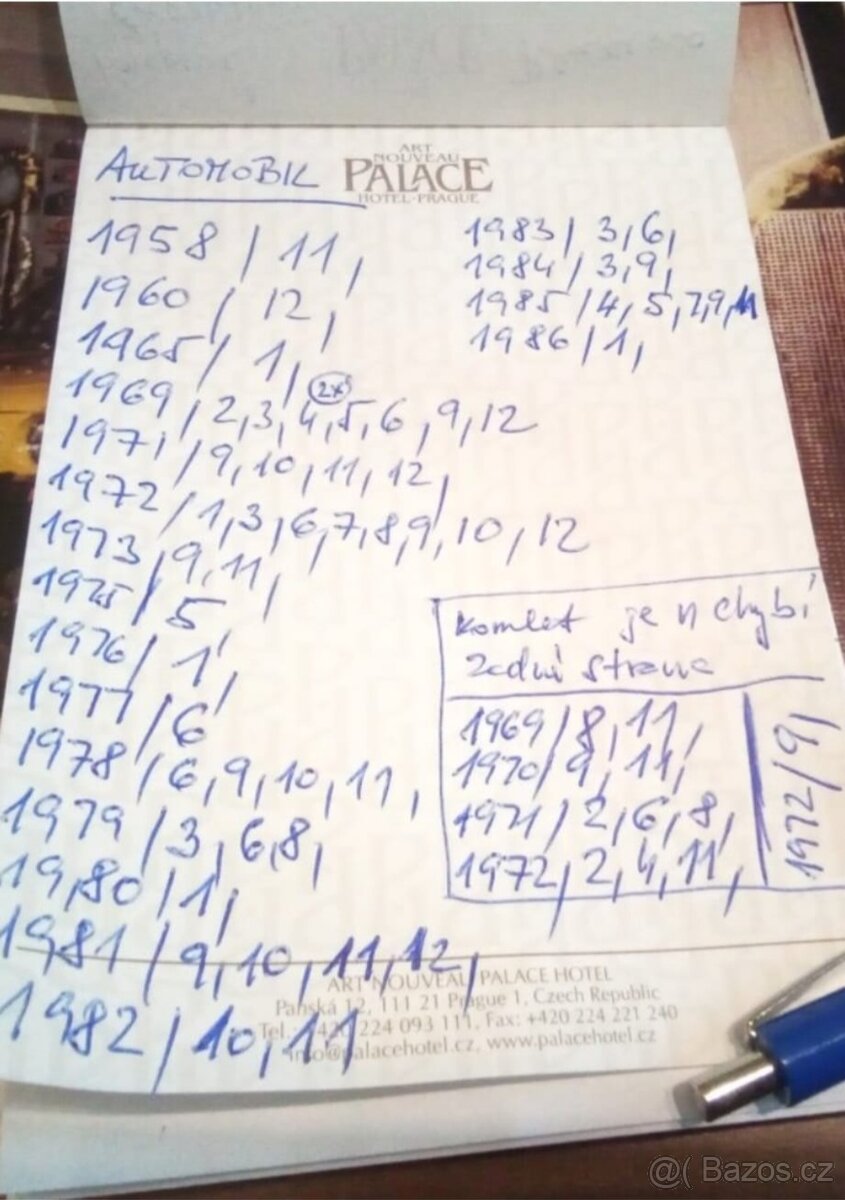 AUTOMOBIL
ART
NOUVEAU
PALACE
HOTEL·PRAGUE
1958 / 11,
1960 / 12,
1965 / 1,
2x
1969 / 2,3,4,5,6,9,12
1971 / 9,10,11,12,
1972 / 1,3,6,7,8,9,10,12
1973, 9,11,
1975 / 5
1976 / 1,
1977 / 6
1978 / 6,9,10,11,
1979 / 3,6,8,
1980 / 1,
1981 / 9,10,11,12,
1982 / 10,11
1983 / 3,6,
1984 / 3,9,
1985 / 4,5,7,9,11
1986 / 1,
komlet je n chybí
zadní strana
1969 / 8,11,
1970 / 9,11,
1971 / 2,6,8,
1972, 2,4,11,
1972/9,
ART NOUVEAU PALACE HOTEL
Panská 12, 111 21 Prague 1, Czech Republic
Tel.: +420 224 093 111, Fax: +420 224 221 240
info@palacehotel.cz, www.palacehotel.cz
@( Bazos.cz